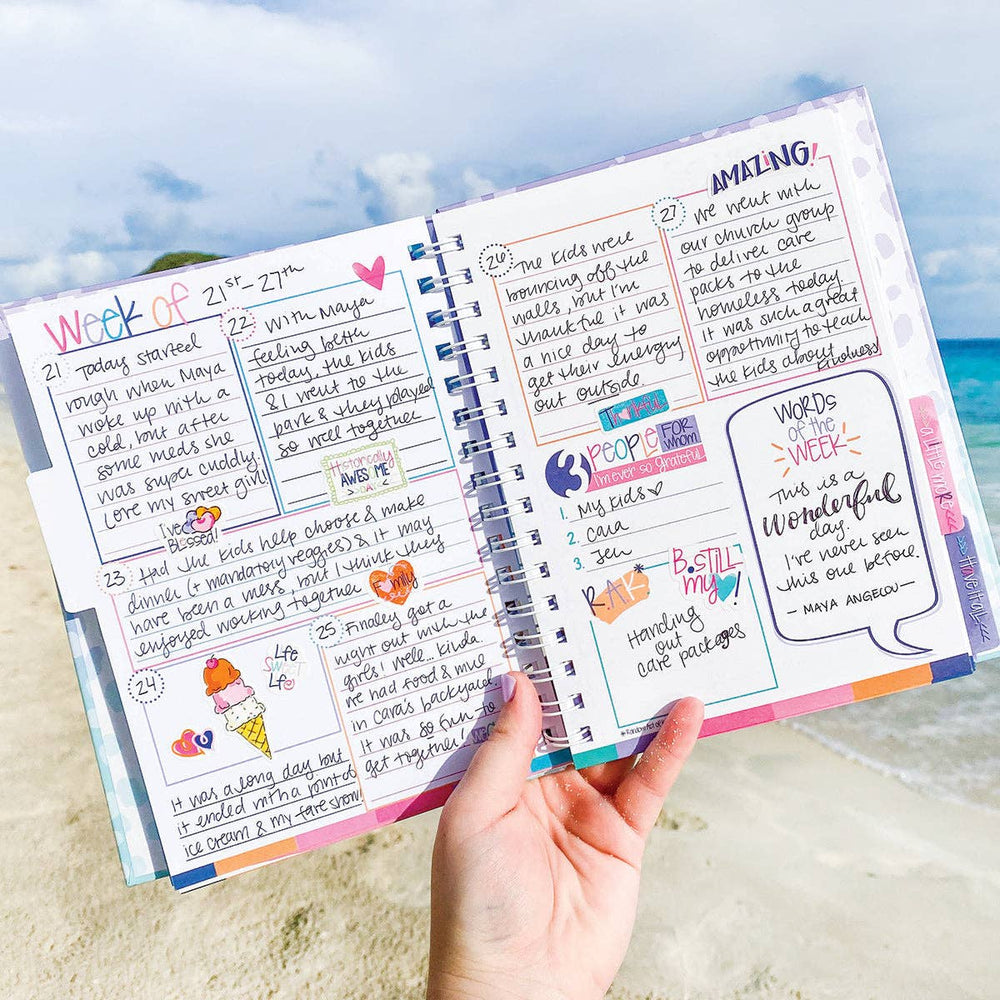 Week of 21st-27th
21
Today started
rough when Maya
woke up with a
cold, but after
some meds she
was super cuddly.
Love my sweet girl!
I've
Blessed!
22
With Maya
feeling better
today, the kids
& I went to the
park & they played
so well together.
Historically
AWESOME
DAY
23
Had the kids help choose & make
dinner (+ mandatory veggies) & it may
have been a mess, but I think they
enjoyed working together.
Family
24
Life
SWEET
Life
It was a long day but
it ended with a pint of
ice cream & my fave show.
25
Finaley got a
night out with the
girls! Well... kinda.
We had food & music
in Cara's backyard.
It was so fun to
get together!
26
The kids were
bouncing off the
walls, but I'm
thankful it was
a nice day to
get their energy
out outside.
Thankful
AMAZING!
27
We went with
our church group
to deliver care
packs to the
homeless today.
It was such a great
opportunity to teach
the kids about
kindness
3 PEOPLE FOR whom
I'm ever so grateful
1. My kids
2. Cara
3. Jen
R.A.K
B.STILL
My !
Handing
out
care packages
WORDS
of the
WEEK
This is a
wonderful
day.
I've never seen
this one before.
- MAYA ANGELOU -
>>a little more<<
>>Have it all<<